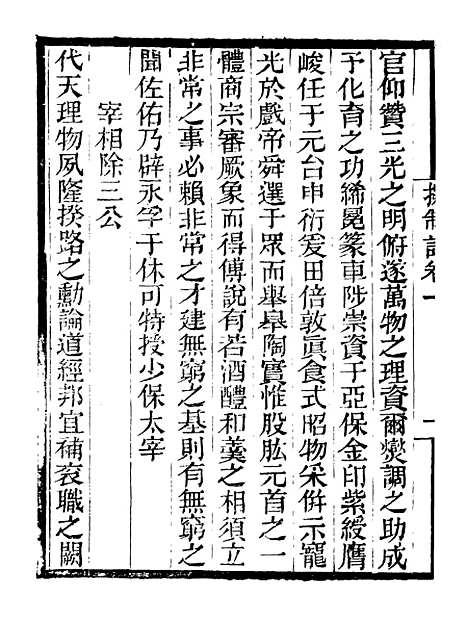 擬制詔卷一
一
官仰贊三光之明俯遂萬物之理資爾燮調之助成
予化育之功絺冕篆車陟崇資于亞保金印紫綬膺
峻任于元台申衍爰田倍敦眞食式昭物采併示寵
光於戲帝舜選于眾而舉皐陶實惟股肱元首之一
體商宗審厥象而得傅說有若酒醴和羹之相須立
非常之事必賴非常之才建無窮之基則有無窮之
聞佐佑乃辟永孚于休可特授少保太宰
宰相除三公
代天理物夙隆揆路之勳論道經邦宜補袞職之闕